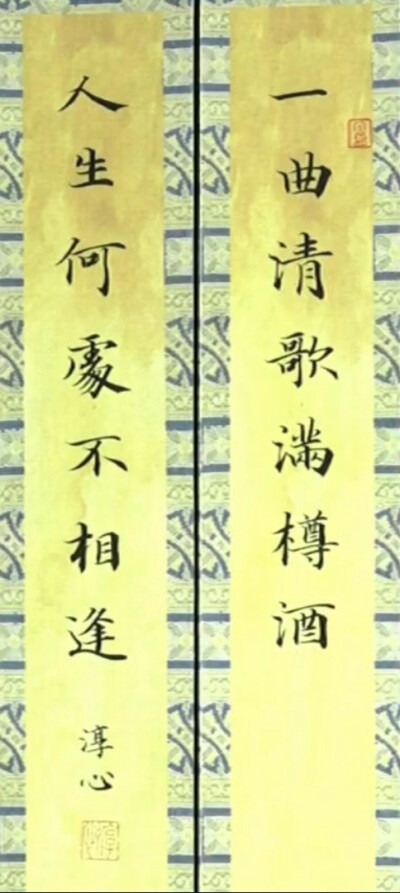 一曲清歌滿樽酒
人生何處不相逢
淳心